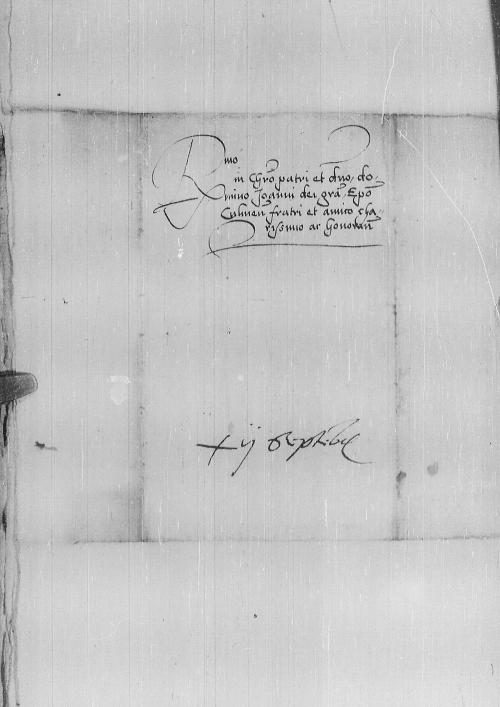 Rmo
in Chro patri et dno, do-
mino Joanni dei gra Epo
Culmen fratri et amico cha-
rissimo ac honoran
xij Septibr